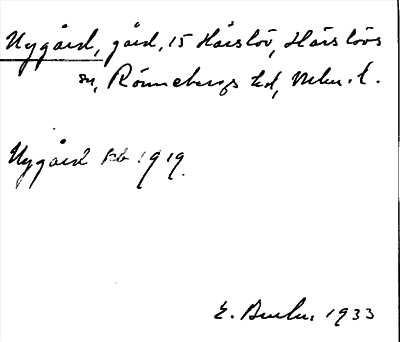 Nygård, gård, 15 Hårslöv, Hårslövs
sn, Rönnebergs hd, Mlm. l.
Nygård Pb 1919.
E. 1933